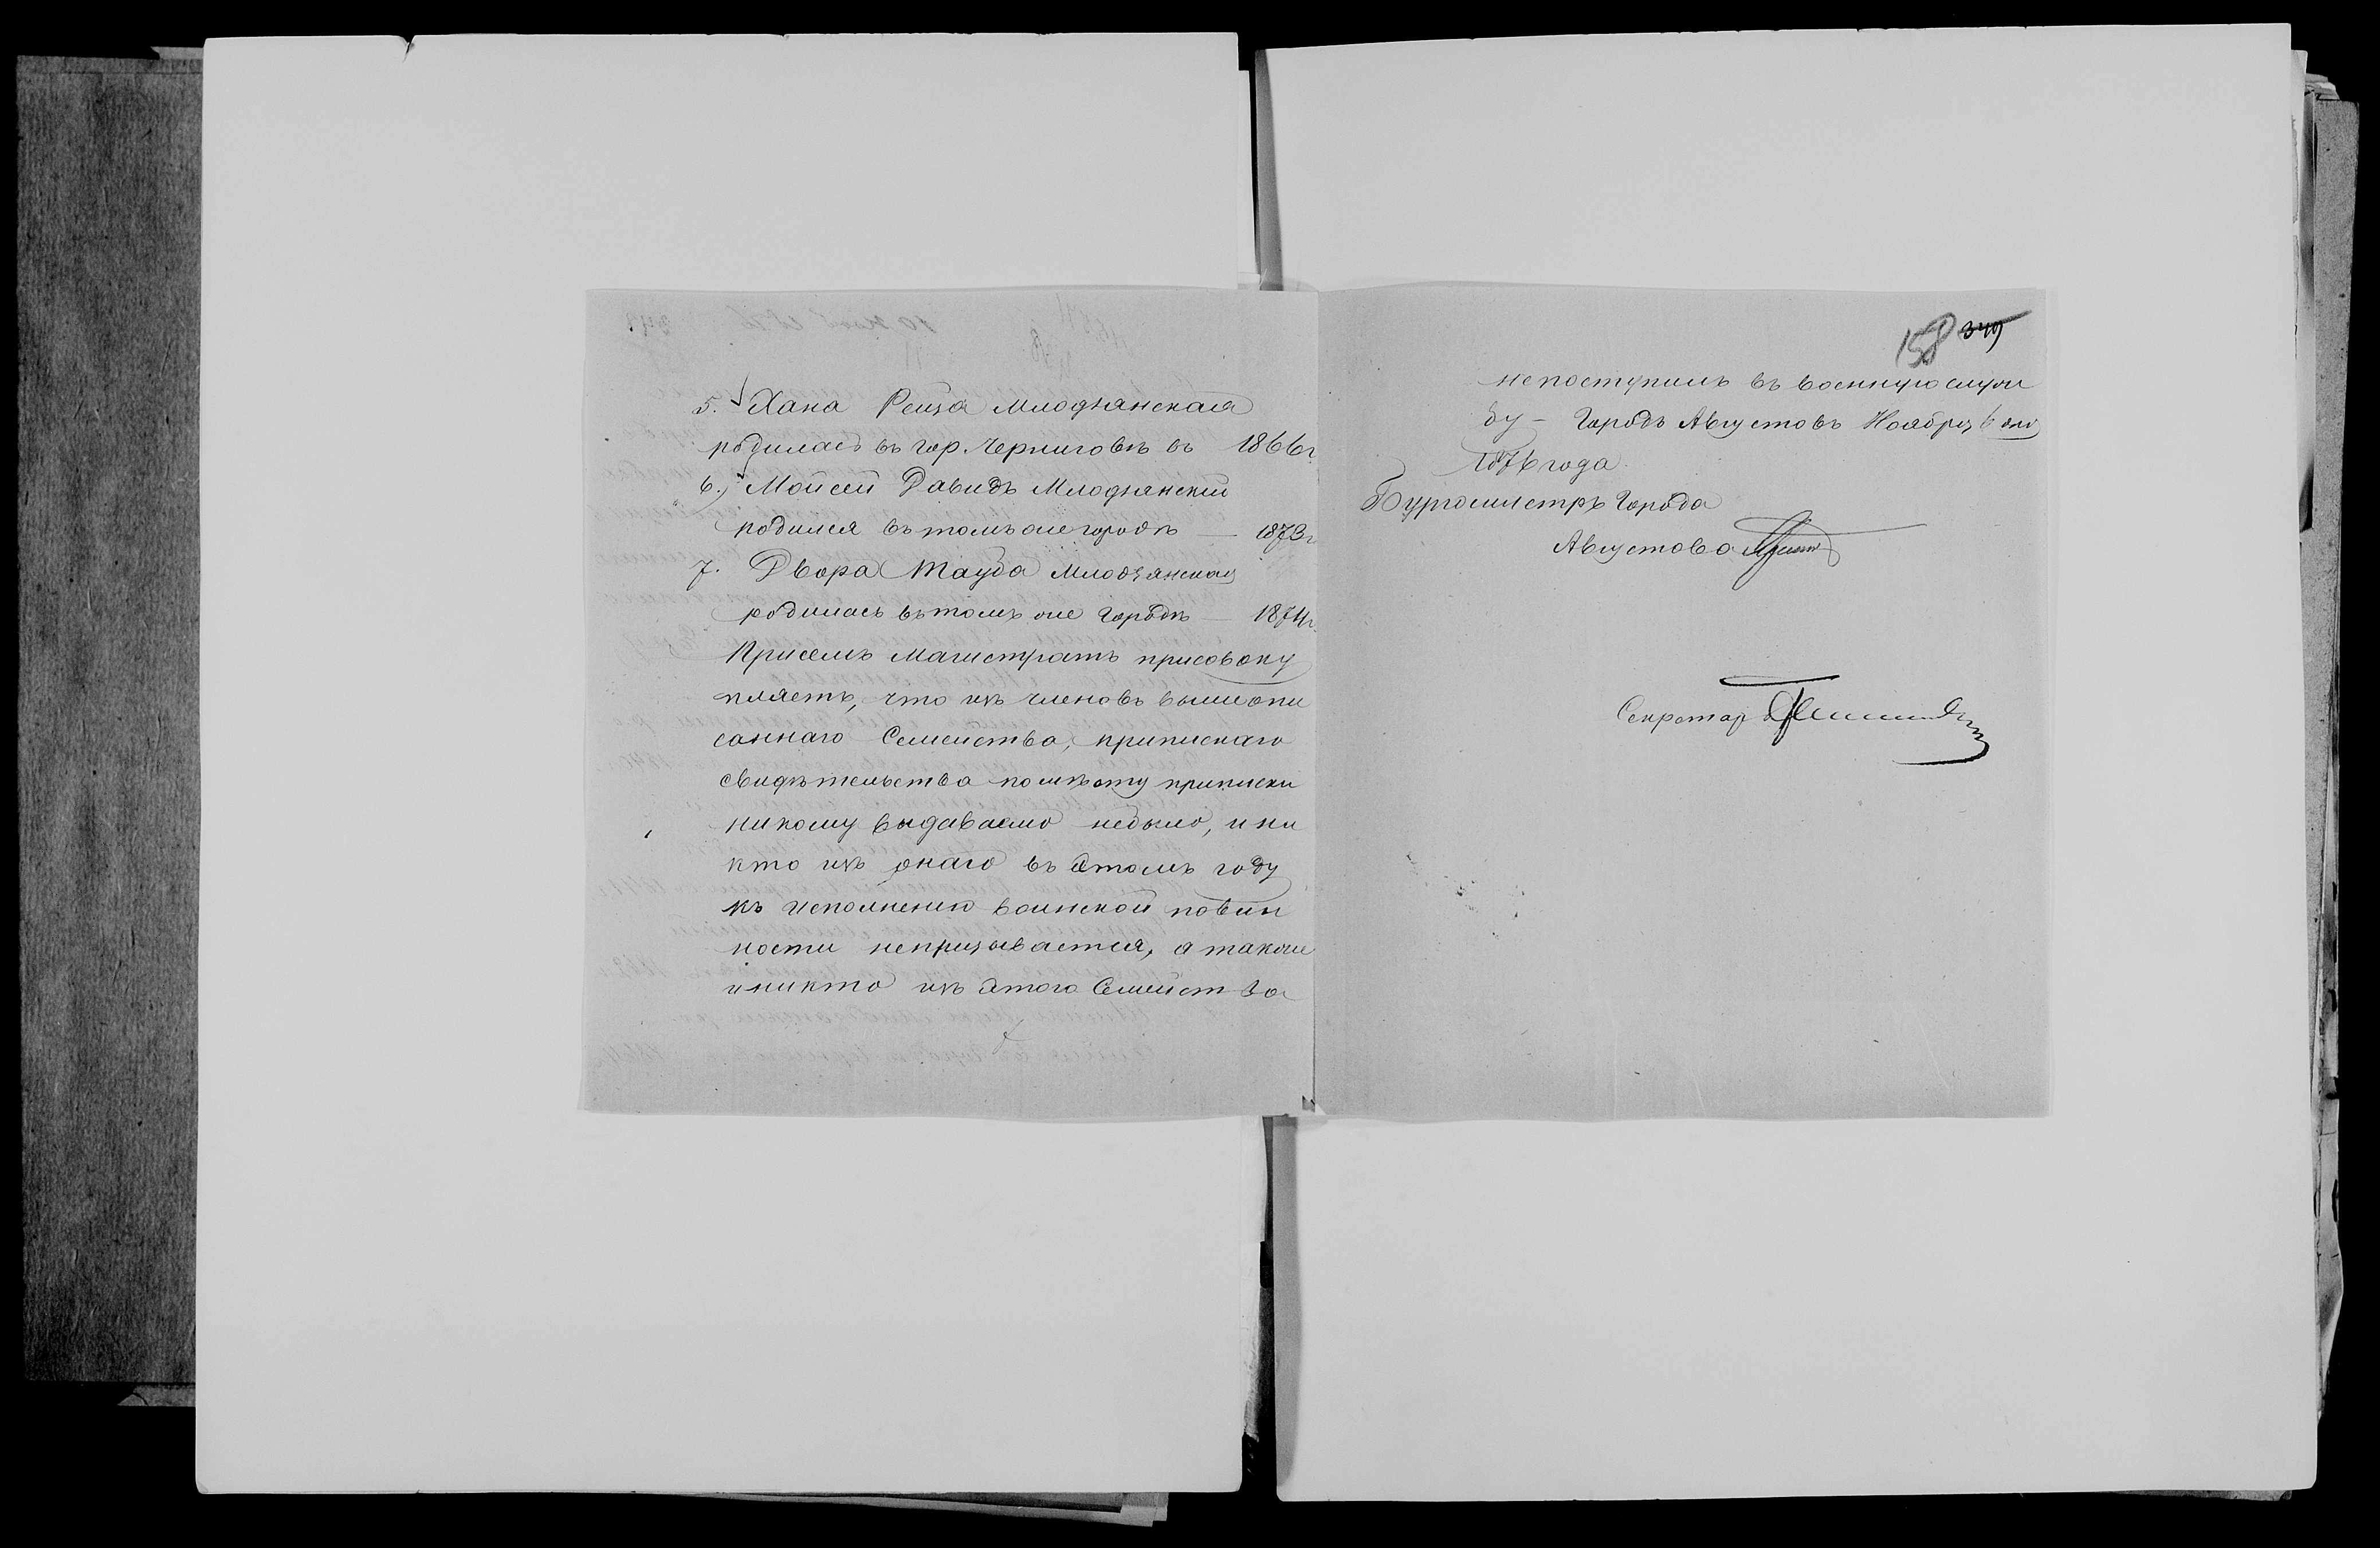 5. Хана Рейза Млодзянская
родилась въ гор. Черниговѣ въ 1866 г
6. Мойсей Давидъ Млодзянскій
родился въ томъ же городѣ — 1873 г
7. Двора Тауба Млодзянская
родилась въ томъ же городѣ — 1874 г.
Присемъ Магистратъ присовоку
пляетъ, что изъ членовъ вышеопи
саннаго Семейства, приписнаго
свидѣтельства по мѣсту приписки
никому выдаваемо небыло, и ни
кто изъ онаго въ этомъ году
къ исполненію воинской повин
ности непризывается, а также
и никто изъ этого Семейства
158 349
не поступилъ въ военную служ
бу – Городъ Августовъ Ноября 6 дня
1876 года.
Бургомистръ Города
Августова
Секретарь